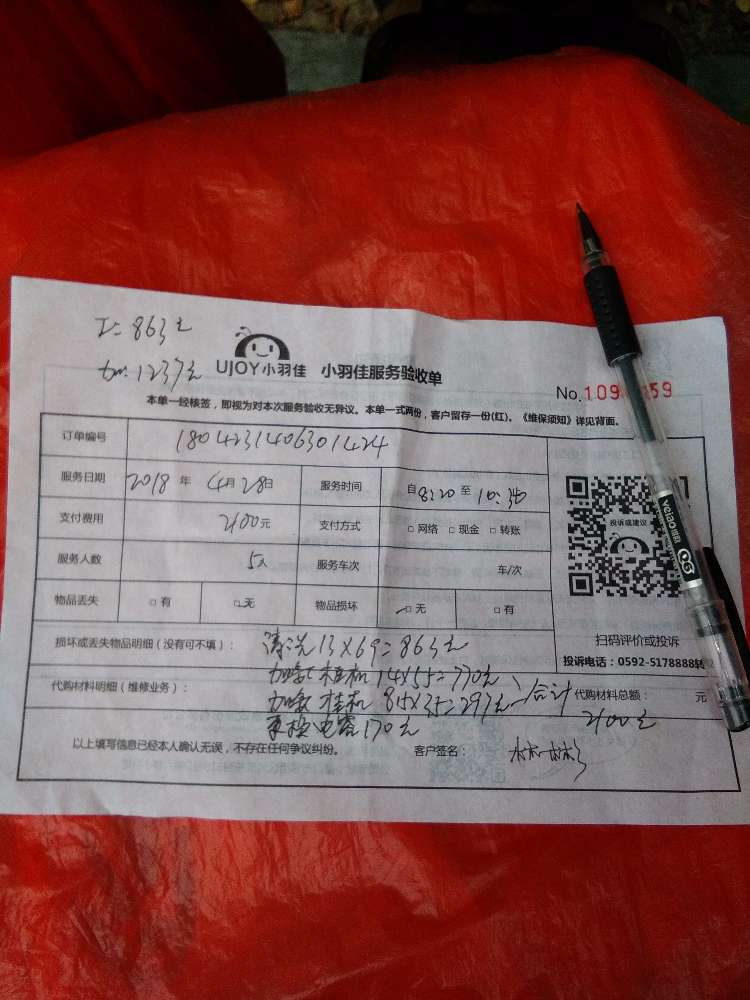 工: 863元
加: 1237元
UJOY小羽佳 小羽佳服务验收单
No.109 59
本单一经核签，即视为对本次服务验收无异议。本单一式两份，客户留存一份(红)。《维保须知》详见背面。
订单编号 1804231406301424
服务日期 2018 年 4月 28日 服务时间 自 8:20 至 10:36
支付费用 2100元 支付方式 □ 网络 □ 现金 □ 转账
服务人数 5人 服务车次 车/次
物品丢失 □ 有 □ 无 物品损坏 □ 无 □ 有
投诉或建议
扫码评价或投诉
投诉电话：0592-5178888转
损坏或丢失物品明细（没有可不填）： 清洗13×69=863元
加氟 柜机 14×55=770元
代购材料明细（维修业务）： 加氟 挂机 8.5×35=297元 合计 代购材料总额： 元
更换电容170元 2100元
以上填写信息已经本人确认无误，不存在任何争议纠纷。 客户签名：
veiao